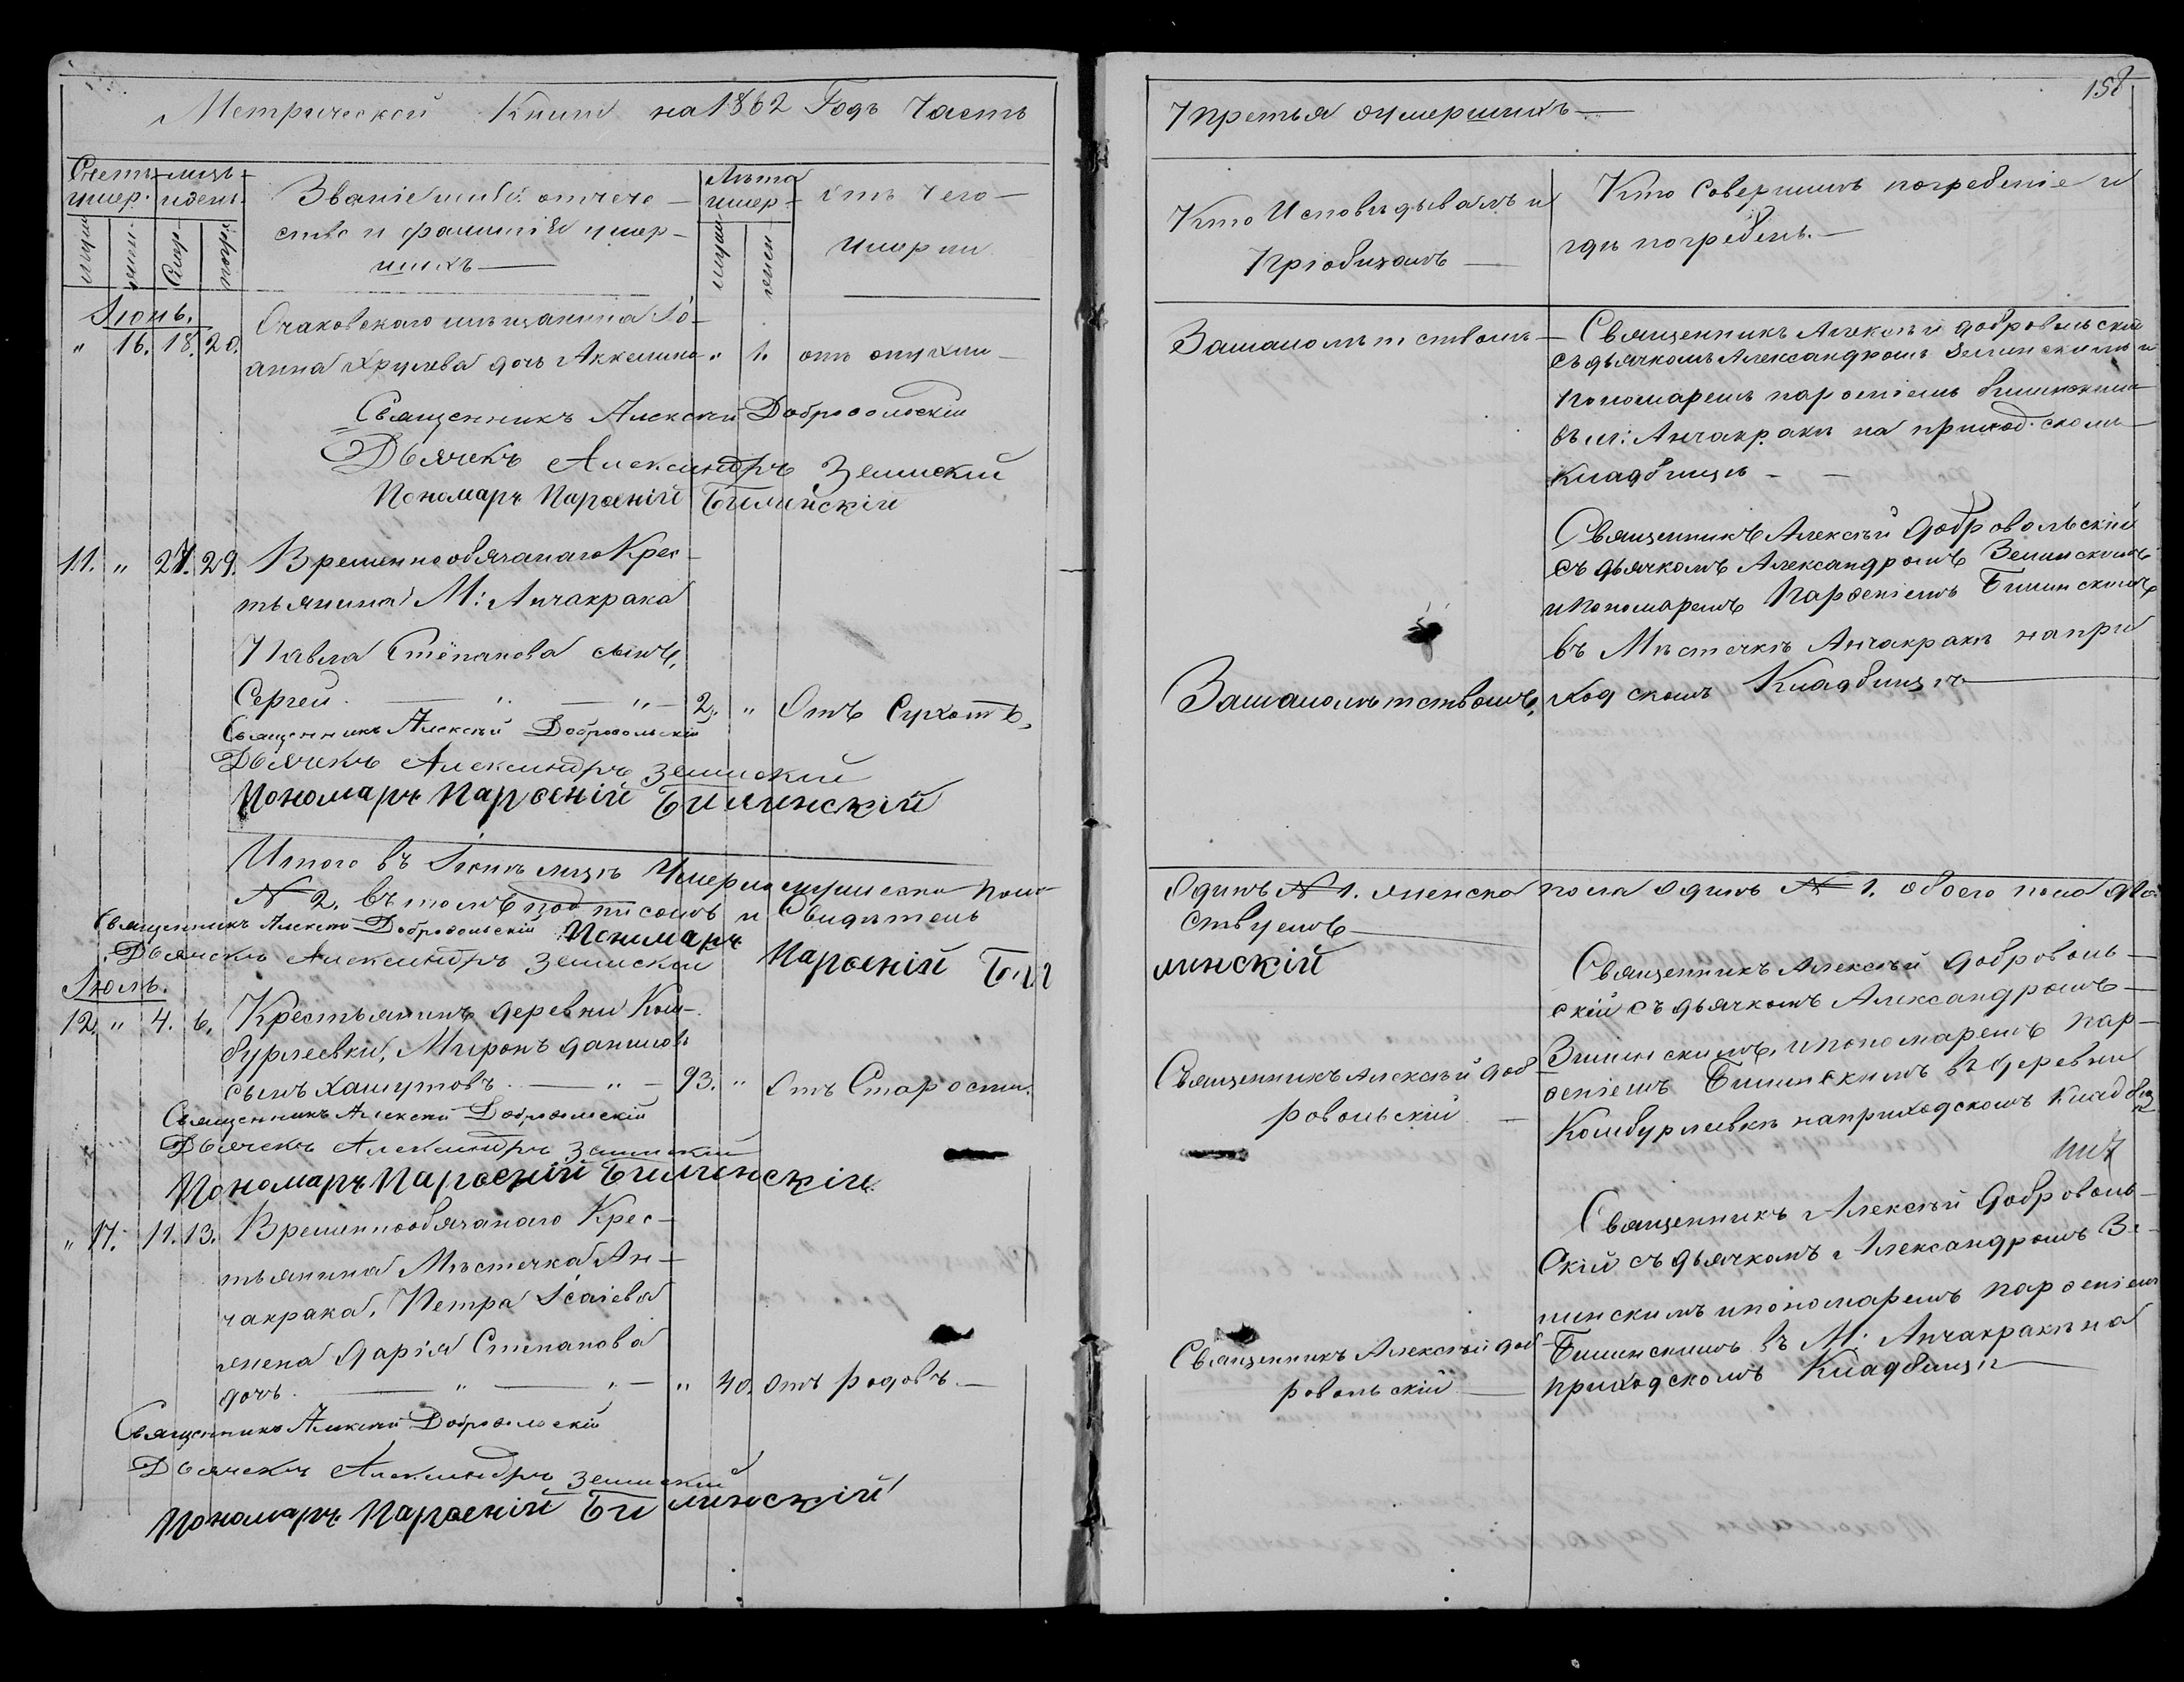 Метрической Книги на 1862 Годъ Часть
Счетъ умер.
мцъ и день.
Званіе имя отчество и фамилія умершихъ
Лѣта умер-
отъ чего
умерли
Іюнь.
" 16. 18. 20. Очаковскаго мѣщанина Іо-
анна Хрулева дочь Аккелина " 1. отъ опухли
Священникъ Алексѣй Добровольскій
Дьячекъ Александръ Зелинскій
Пономарь Парѳеній Билинскій
11. " 27. 29. Временнообязанаго Крес-
тьянина М: Анчакрака
Павла Стёпанова сынъ,
Сергей. " " 2. " Отъ Сухотъ,
Священникъ Алексѣй Добровольскій
Дьячекъ Александръ Зелинскій
Пономарь Парѳеній Билинскій
Итого въ Іюнѣ мцѣ Умерло мужеска пола
№ 2. въ томъ подписомъ и Свидѣтель
Священникъ Алексѣй Добровольскій Пономарь
Дьячекъ Александръ Зелинскій Парѳеній Би
Іюль.
12. " 4. 6. Крестьянинъ деревни Ком-
бурлеевки, Миронъ Данилов
сынъ Хашутовъ. " 93. " Отъ Старости.
Священникъ Алексѣй Добровольскій
Дьячекъ Александръ Зелинскій
Пономарь Парѳеній Билинскій
" 17. 11. 13. Временнообязанаго Крес-
тьянина Мѣстечка Ан-
чакрака, Петра Ісаіева
жена Дарія Стёпанова
дочь. " " " 40. Отъ родовъ.
Священникъ Алексѣй Добровольскій
Дьячекъ Александръ Зелинскій
Пономарь Парѳеній Билинскій
158
Третья оумершихъ
Кто Исповѣдывалъ и
Пріобщалъ
Кто Совершилъ погребеніе и
гдѣ погребенъ.
Замалолѣтствомъ
Священникъ Алексѣй Добровольскій
съ дьячкомъ Александромъ Зелинскимъ и
Пономаремъ парѳеніемъ билинскимъ
въ м: Анчакракѣ на приход.скомъ
Кладбищѣ
Священникъ Алексѣй Добровольскій
съ дьячкомъ Александромъ Зелинскимъ
и Пономаремъ Парѳеніемъ Билинскимъ
въ Мѣстечкѣ Анчакракѣ на при
Замалолѣтствомъ, ходскомъ Кладбищѣ
Одинъ № 1. женска пола Одинъ № 1. обоего пола два
ствуемъ
линскій
Священникъ Алексѣй Доброволь-
скій съ дьячкомъ Александромъ
Зилинскимъ, и пономаремъ пар-
ѳеніемъ Билинскимъ въ деревни
Комбурлевкѣ на приходскомъ Кладбищ
Священникъ Алексѣй доб
ровольскій
Священникъ Алексѣй Доброволь-
Скій съ дьячкомъ Александромъ Зе-
линскимъ и пономаремъ парѳеніемъ
Билинскимъ въ М: Анчакракѣ на
приходскомъ Кладбищѣ
Священникъ Алексѣй доб
ровольскій